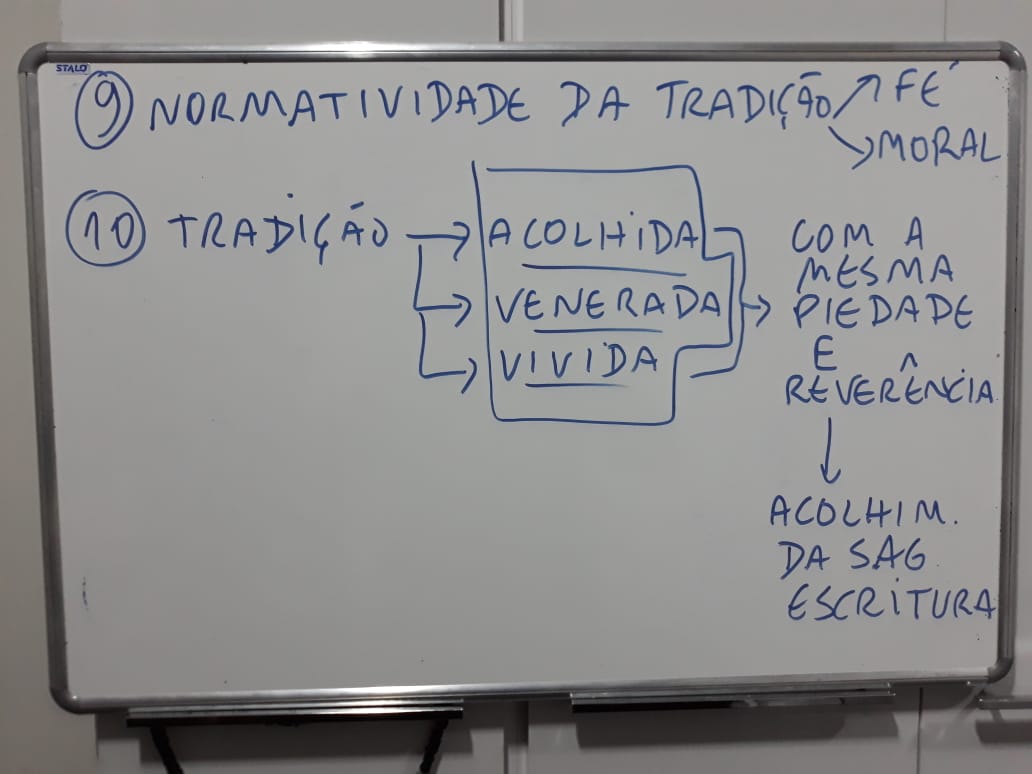 STALO
9 NORMATIVIDADE DA TRADIÇÃO ↗ FÉ
↘ MORAL
10 TRADIÇÃO → ACOLHIDA
→ VENERADA
→ VIVIDA
→ COM A
MESMA
PIEDADE
E
REVERÊNCIA
↓
ACOLHIM.
DA SAG
ESCRITURA